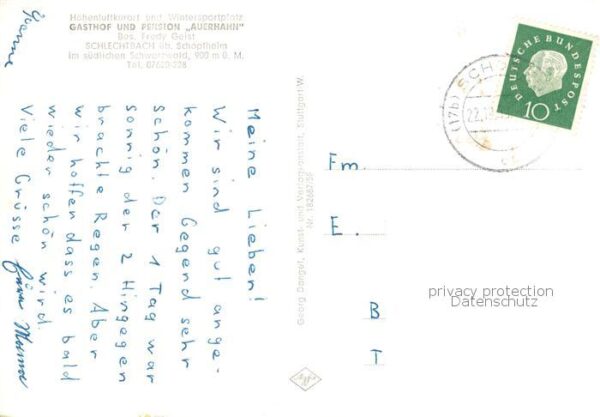 Höhenluftkurort und Wintersportplatz
GASTHOF UND PENSION „AUERHAHN"
Bes. Fredy Geist
SCHLECHTBACH üb. Schopfheim
im südlichen Schwarzwald, 900 m ü. M.
Tel. 07620-228
Meine Lieben!
Wir sind gut ange-
kommen Gegend sehr
schön. Der 1 Tag war
sonnig der 2 Hingegen
brachte Regen. Aber
wir hoffen dass es bald
wieder schön wird.
Viele Grüsse
Georg Dangut, Kunst- und Verlagsanstalt, Stuttgart W.
Nr. 18268/59
DEUTSCHE BUNDESPOST
10
(17b)
Fm.
E.
B
T
privacy protection
Datenschutz